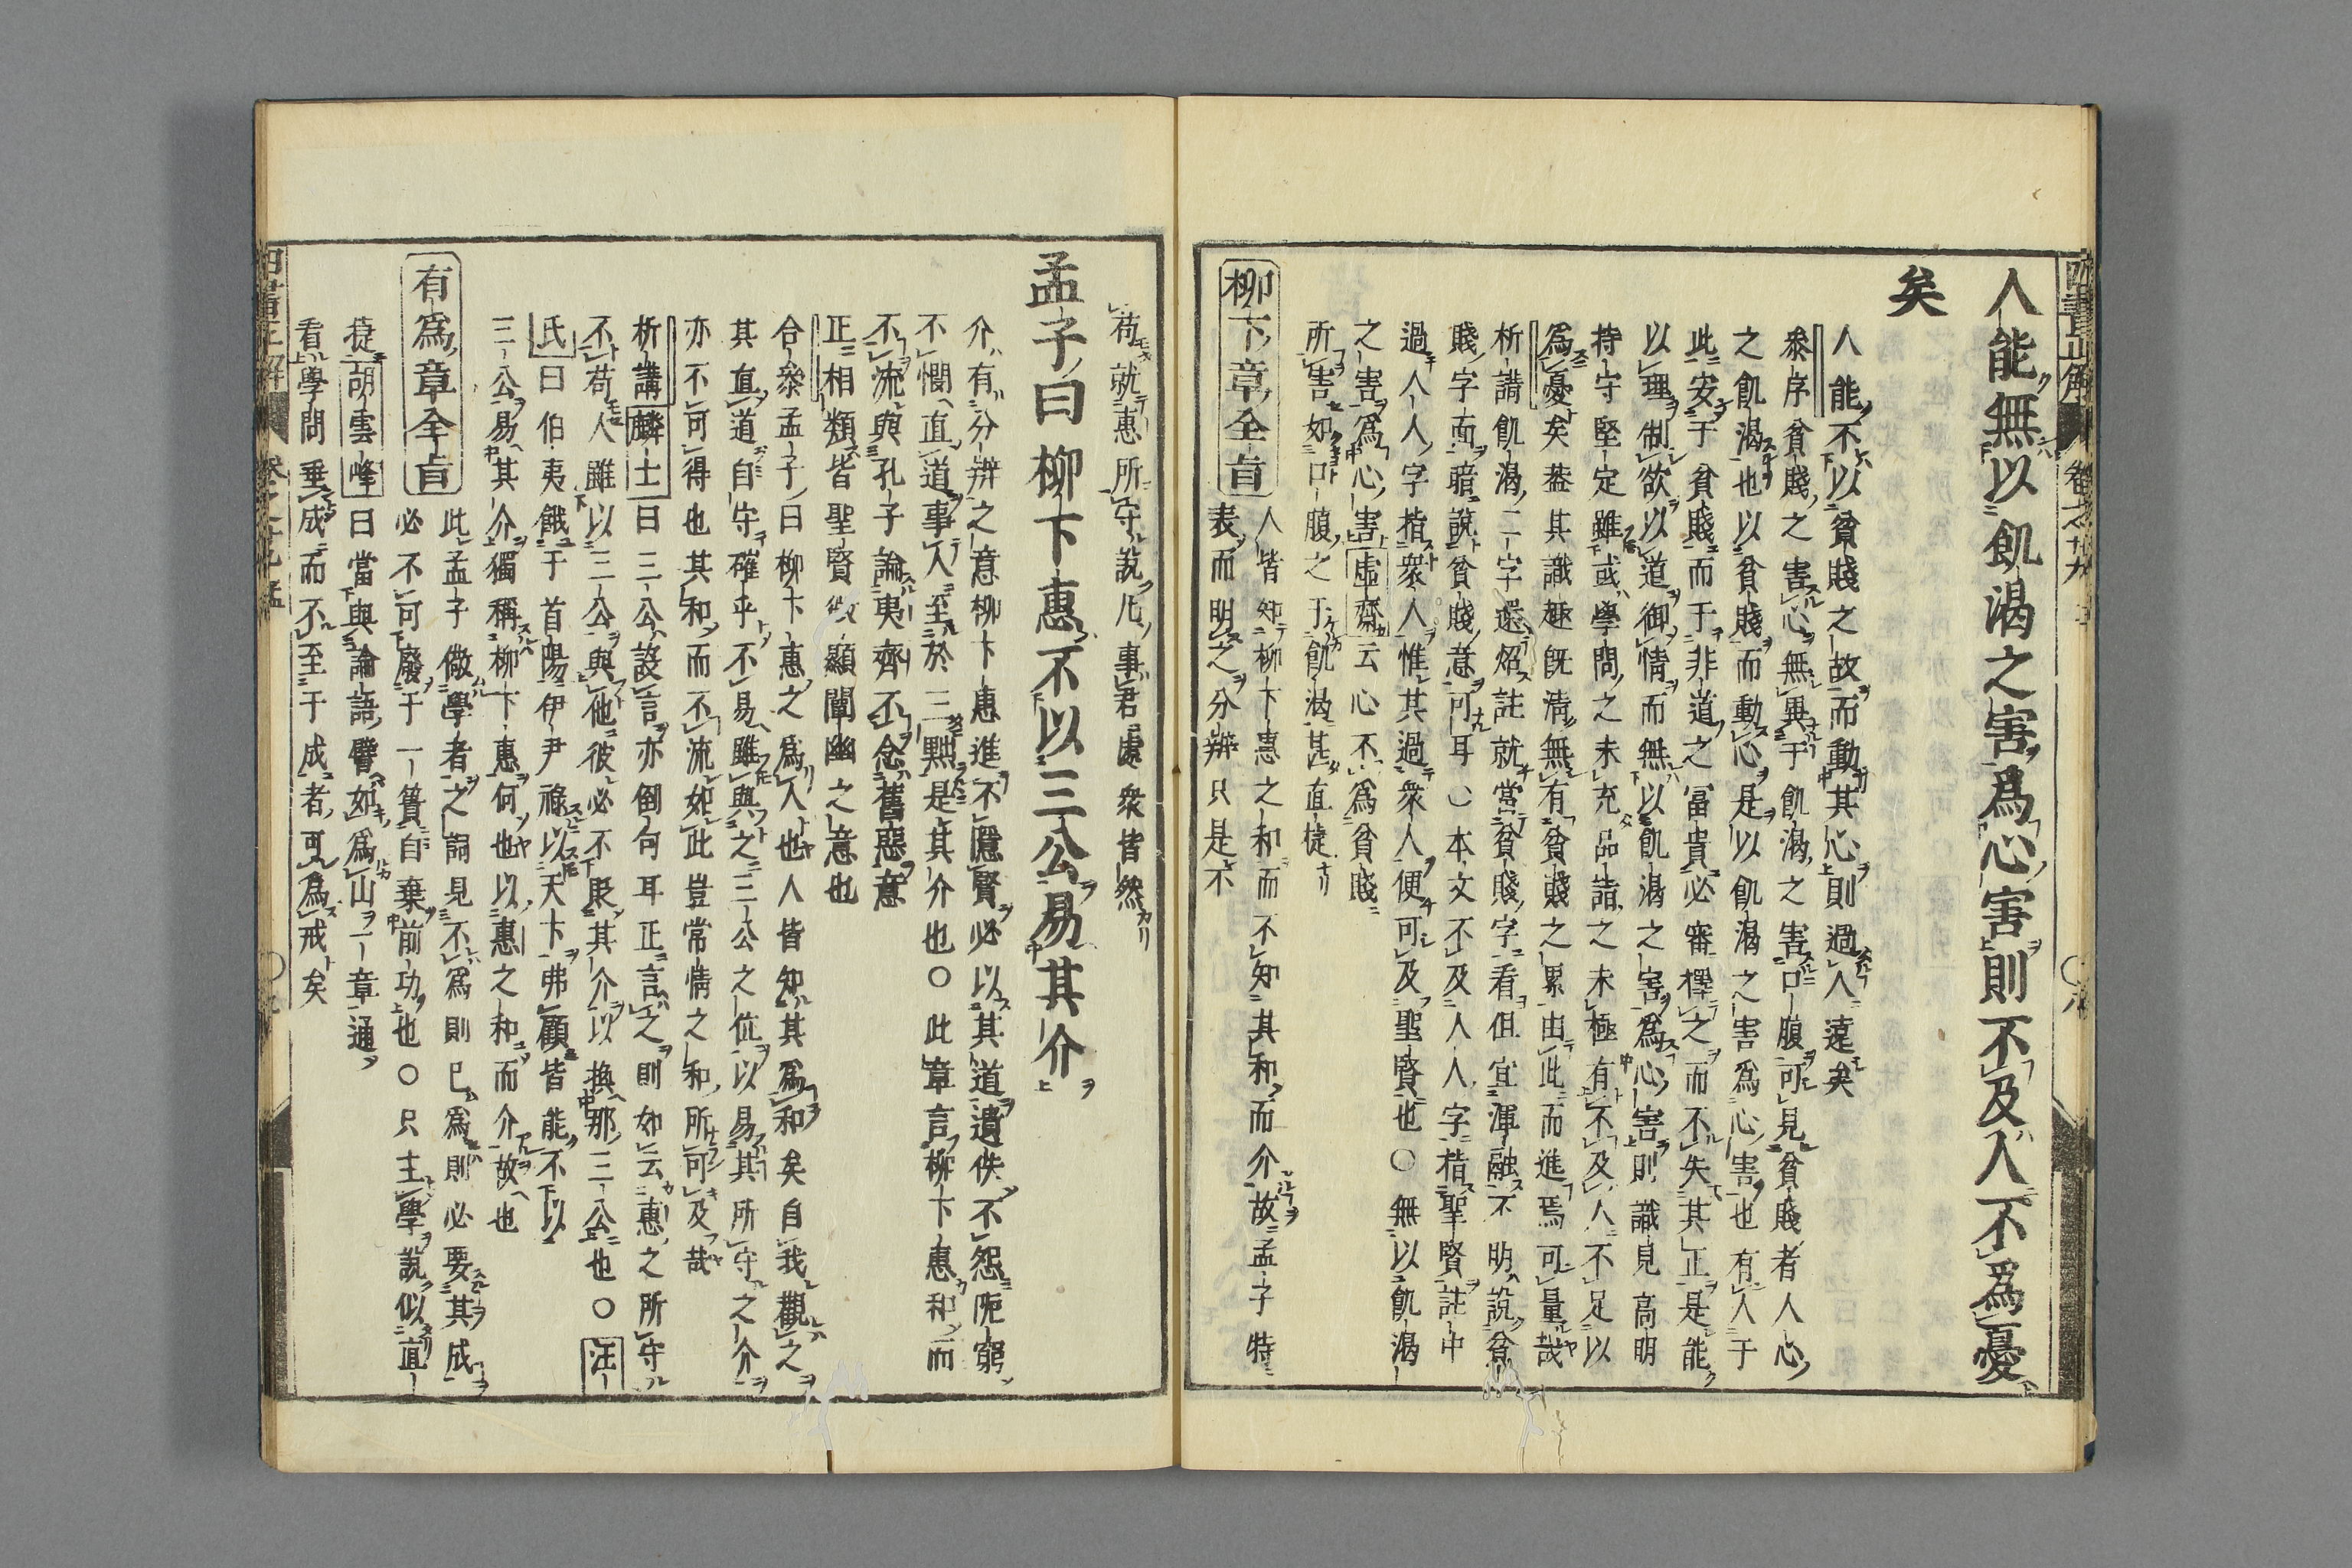 人能無以飢渴之害爲心害則不及人不爲憂
矣
人能不以貧賤之故而動其心則過人遠矣
叅序貧賤之害心無異于飢渴之害口腹可見貧賤者人心
之飢渴也以貧賤而動心是以飢渴之害爲心害也有人于
此安于貧賤而于非道之富貴必審擇之而不失其正是能
以理制欲以道御情而無以飢渴之害爲心害則識見高明
持守堅定雖或學問之未充品詣之未極有不及人不足以
爲憂矣葢其識趣既淸無有貧賤之累由此而進焉可量哉
析講飢渴二字還炤註就當貧賤字看但宜渾融不明說貧
賤字而暗說貧賤意可耳○本文不及人人字指聖賢註中
過人人字指衆人惟其過衆人便可及聖賢也○無以飢渴
之害爲心害虛齋云心不爲貧賤
所害如口腹之于飢渴甚直捷
柳下章全旨
人皆知柳下惠之和而不知其和而介故孟子特
表而明之分辨只是不
苟就惠所守說凡事君處衆皆然
孟子曰柳下惠不以三公易其介
介有分辨之意柳下惠進不隱賢必以其道遺佚不怨阨窮
不憫直道事人至於三黜是其介也○此章言柳下惠和而
不流與孔子論夷齊不念舊惡意
正相類皆聖賢微顯闡幽之意也
合叅孟子曰柳下惠之爲人也人皆知其爲和矣自我觀之
其直道自守確乎不易雖與之三公之位以易其所守之介
亦不可得也其和而不流如此豈常情之和所可及哉
析講麟士曰三公設言亦倒句耳正言之則如云惠之所守
不苟人雖以三公與他彼必不貶其介以換那三公也○汪
氏曰伯夷餓于首陽伊尹祿以天下弗顧皆能不以
三公易其介獨稱柳下惠何也以惠之和而介故也
有爲章全旨
此孟子儆學者之詞見不爲則已爲則必要其成
必不可廢于一簣自棄前功也○只主學說似直
捷胡雲峰曰當與論語譬如爲山一章通
看學問垂成而不至于成者可爲戒矣